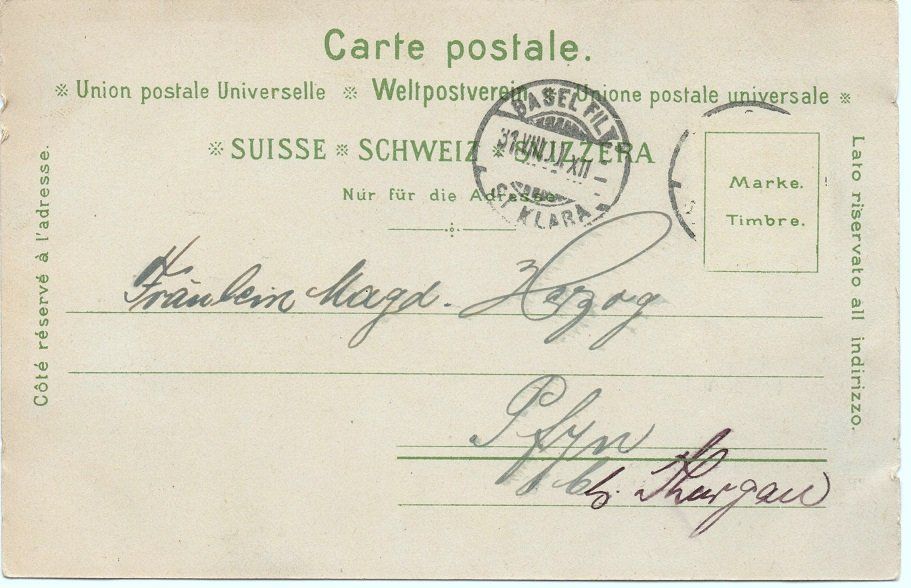 Carte postale.
※ Union postale Universelle ※ Weltpostverein ※ Unione postale universale ※
※ SUISSE ※ SCHWEIZ ※ SVIZZERA
Nur für die Adresse.
BASEL FIL.
ST KLARA
Marke.
Timbre.
Côté réservé à l'adresse.
Lato riservato all indirizzo.
Fräulein Magd. Herzog
Pfyn
Thurgau